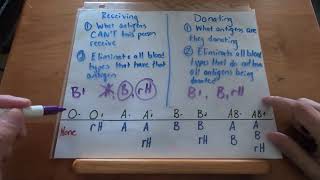 Receiving
① What antigens
CAN'T this person
receive
② Eliminate all blood
types that have that
antigen
B- B rH
Donating
① What antigens are
they donating
② Eliminate all blood
types that do not have
all antigens being
donated
B+, B, rH
O- O+ A- A+ B- B+ AB- AB+
None rH A A B B A A
rH rH B B
rH